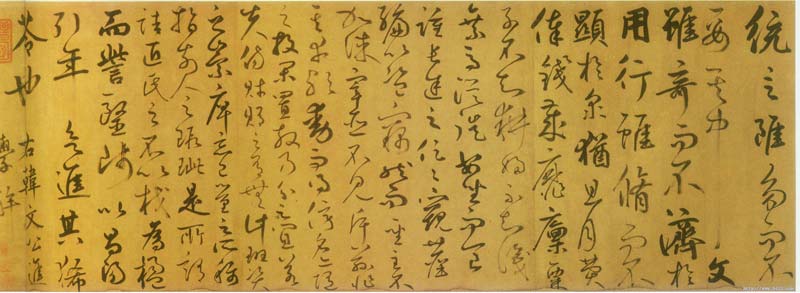 統言雖多而不
要其中 文
雖奇而不濟於
用行雖脩而不
顯於衆猶且月費
俸錢歲靡廩粟
子不知耕婦不知織
乘馬從徒安坐而食
踵長途之促促窺陳
編以盜竊然而聖主不
加誅宰臣不見斥茲非
其幸歟動而得謗名亦隨
之投閑置散乃分之宜若
夫商財賄之有無計班資
之崇庳忘己量之所稱
指前人之瑕疵是所謂
詰匠氏之不以杙為楹
而訾醫師以昌陽
引年欲進其豨
苓也 右韓文公進
學解